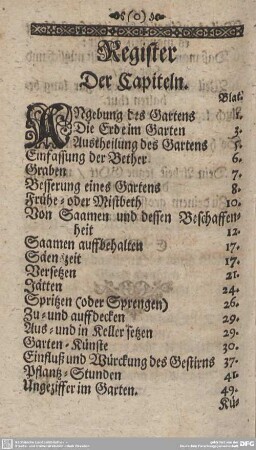 (o)
Register
Der Capiteln.
Blat.
ANgebung des Gartens 1.
Die Erde im Garten 3.
Austheilung des Gartens 5.
Einfassung der Bether 6.
Graben 7.
Besserung eines Gartens 8.
Frühe- oder Mistbeth 10.
Von Saamen und dessen Beschaffen-
heit 12.
Saamen auffbehalten 17.
Säen Zeit 17.
Versetzen 21.
Jätten 24.
Spritzen (oder Sprengen) 26.
Zu- und auffdecken 29.
Aus- und in Keller setzen 29.
Garten-Künste 30.
Einfluß und Würckung des Gestirns 37.
Pflantz-Stunden 41.
Ungeziffer im Garten. 49.
Kü-